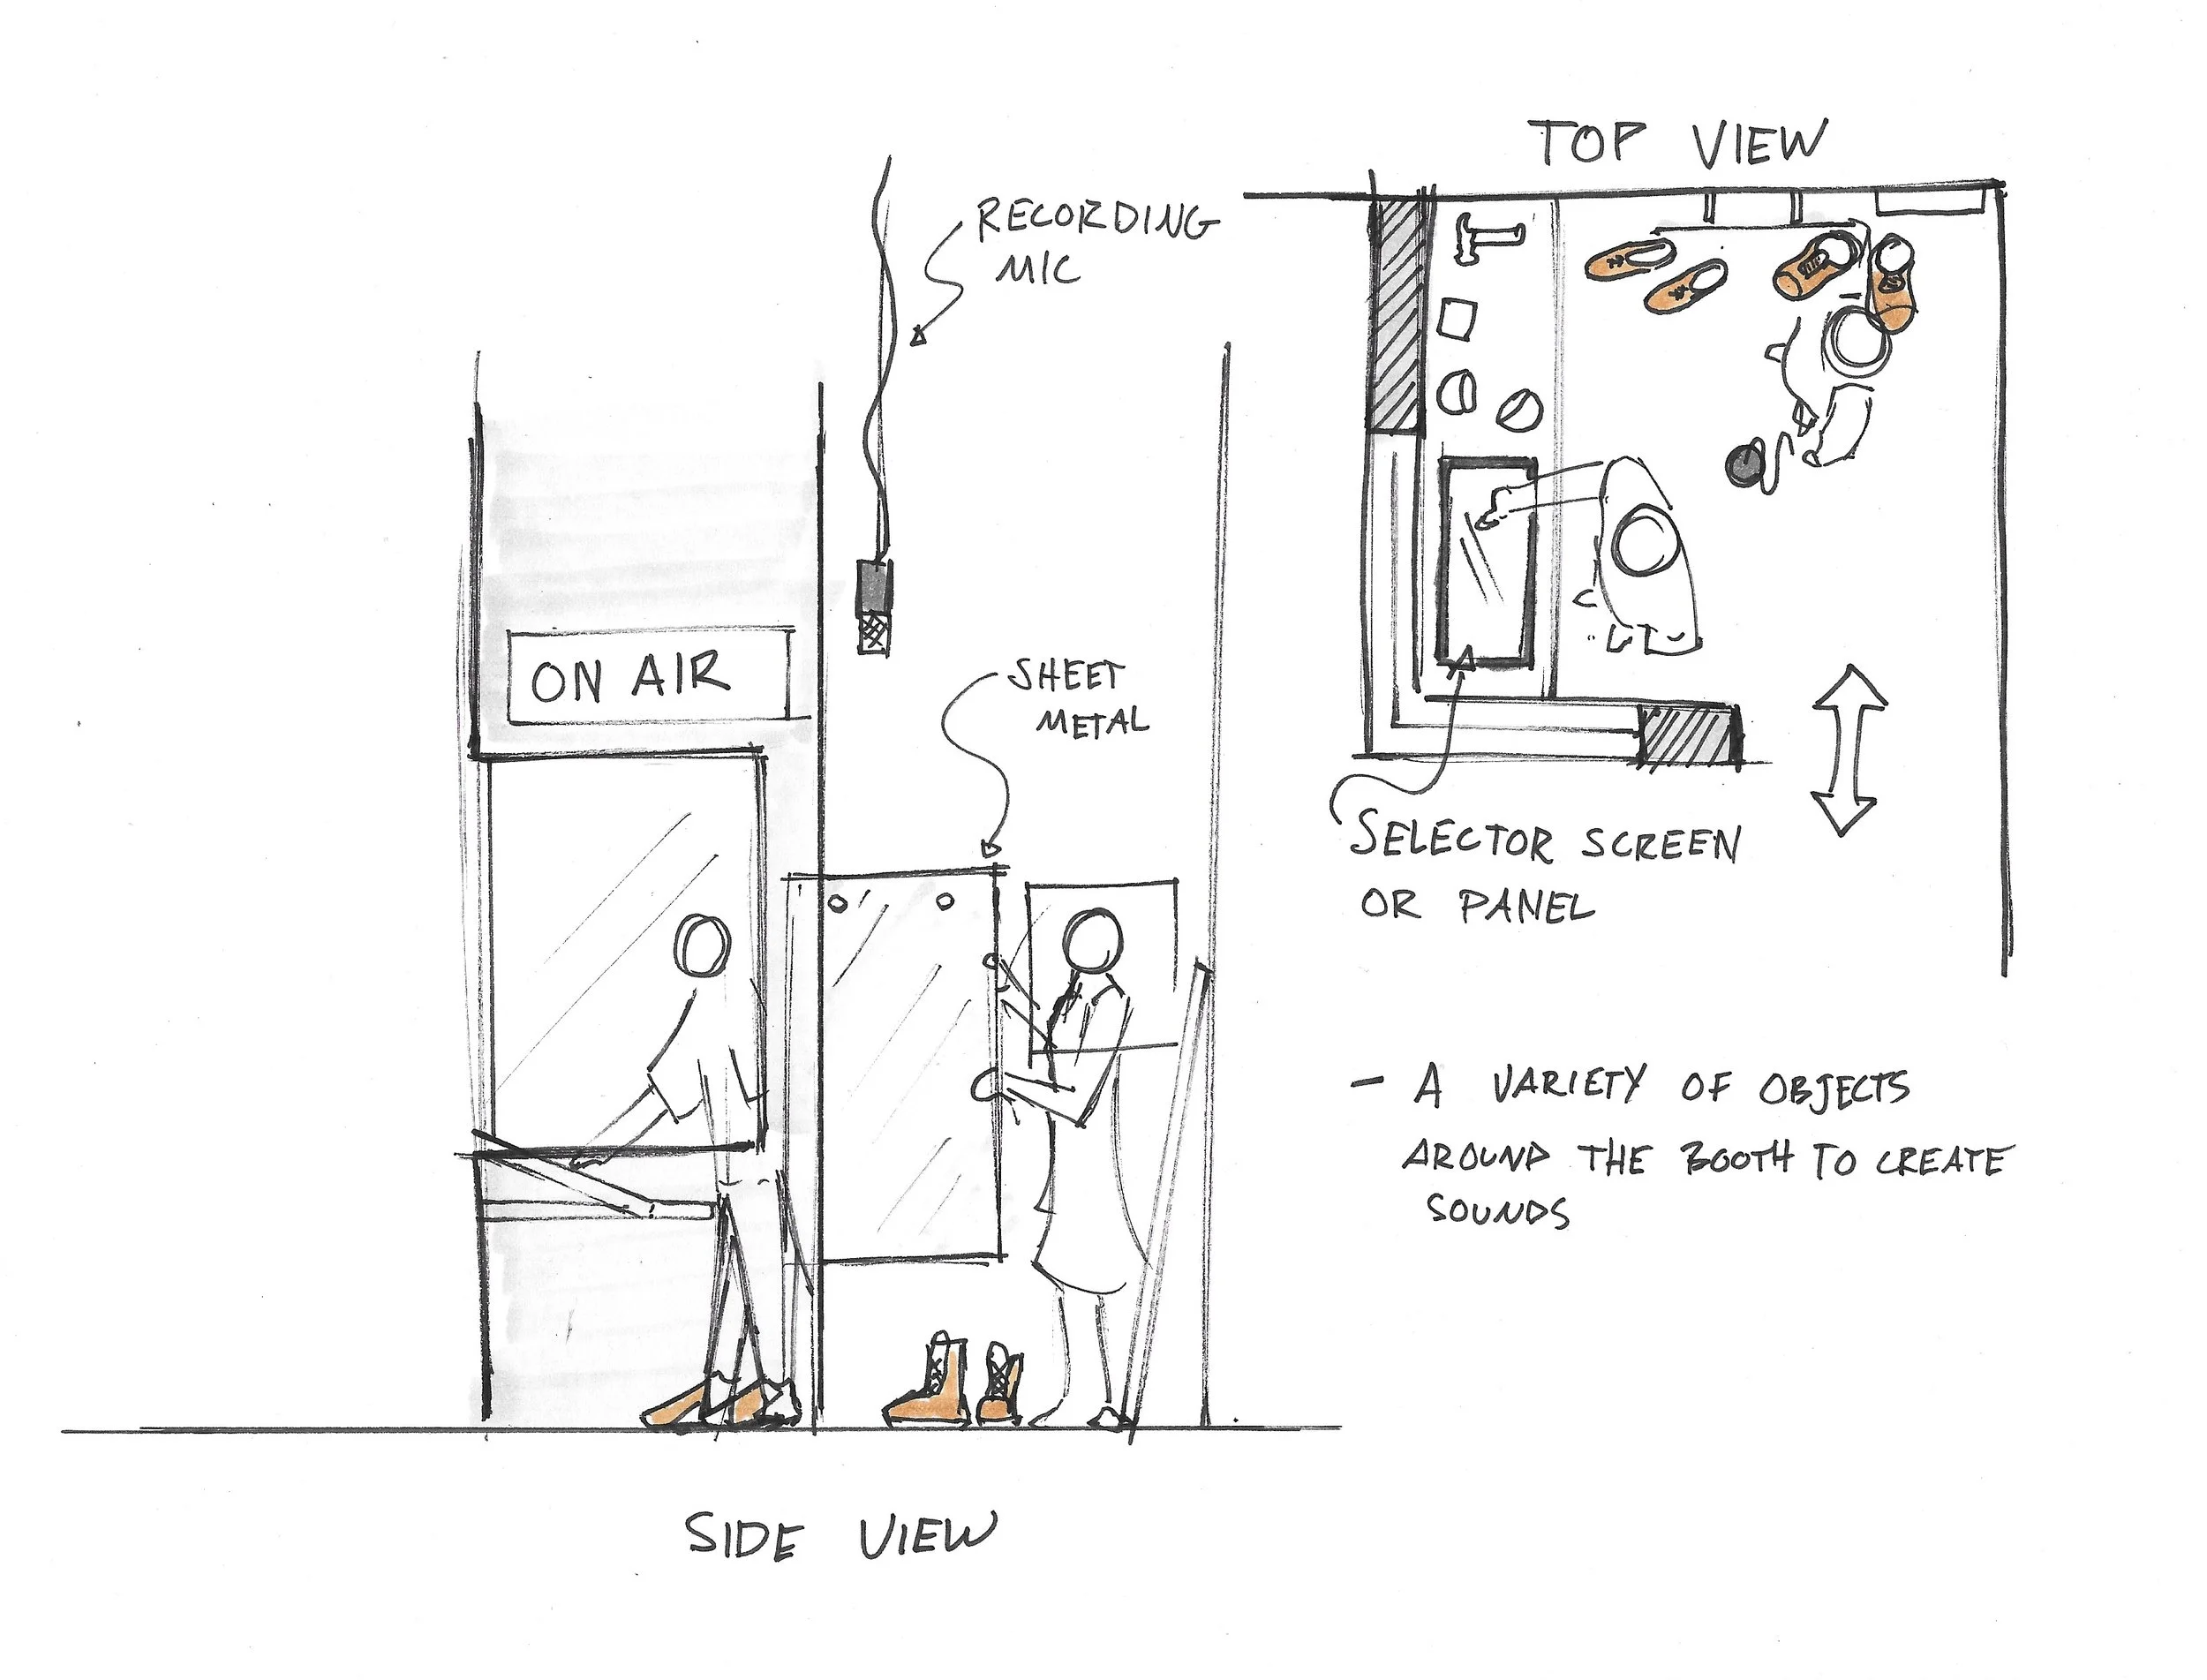 TOP VIEW
RECORDING
MIC
ON AIR
SHEET
METAL
SELECTOR SCREEN
OR PANEL
- A VARIETY OF OBJECTS
AROUND THE BOOTH TO CREATE
SOUNDS
SIDE VIEW